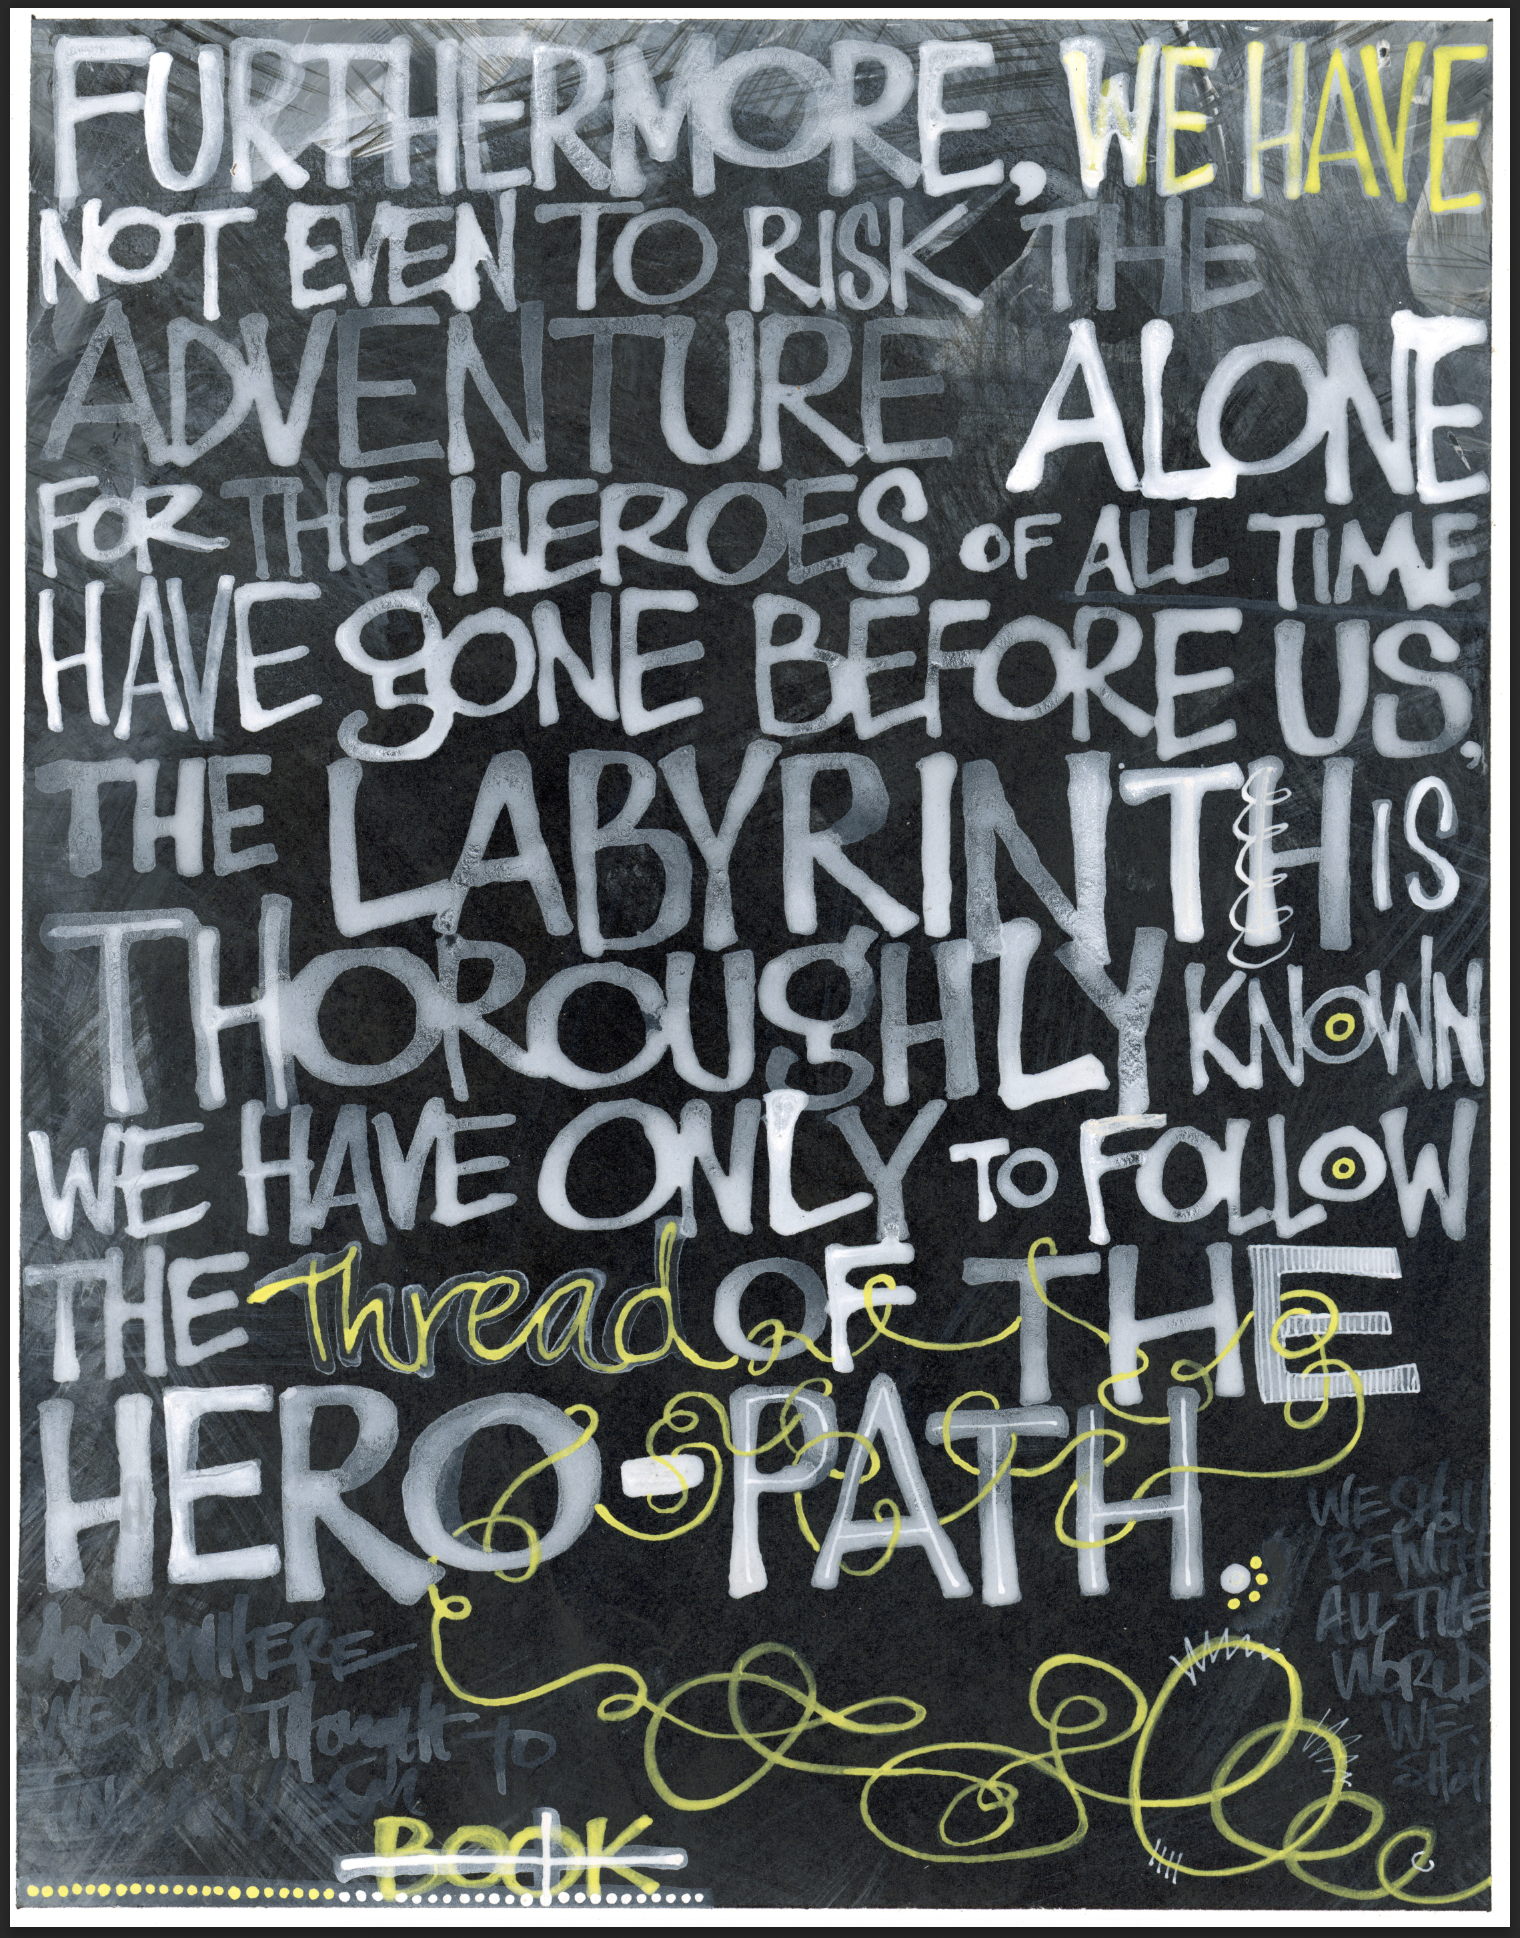 FURTHERMORE, WE HAVE
NOT EVEN TO RISK THE
ADVENTURE ALONE
FOR THE HEROES OF ALL TIME
HAVE gONE BEFORE US,
THE LABYRINTH IS
THOROUgHLY KNOWN
WE HAVE ONLY TO FOLLOW
THE thread OF THE
HERO-PATH.
AND WHERE
WE HAD Thought to
BOOK
WE Shall
BE WITH
ALL THE
WORLD
WE